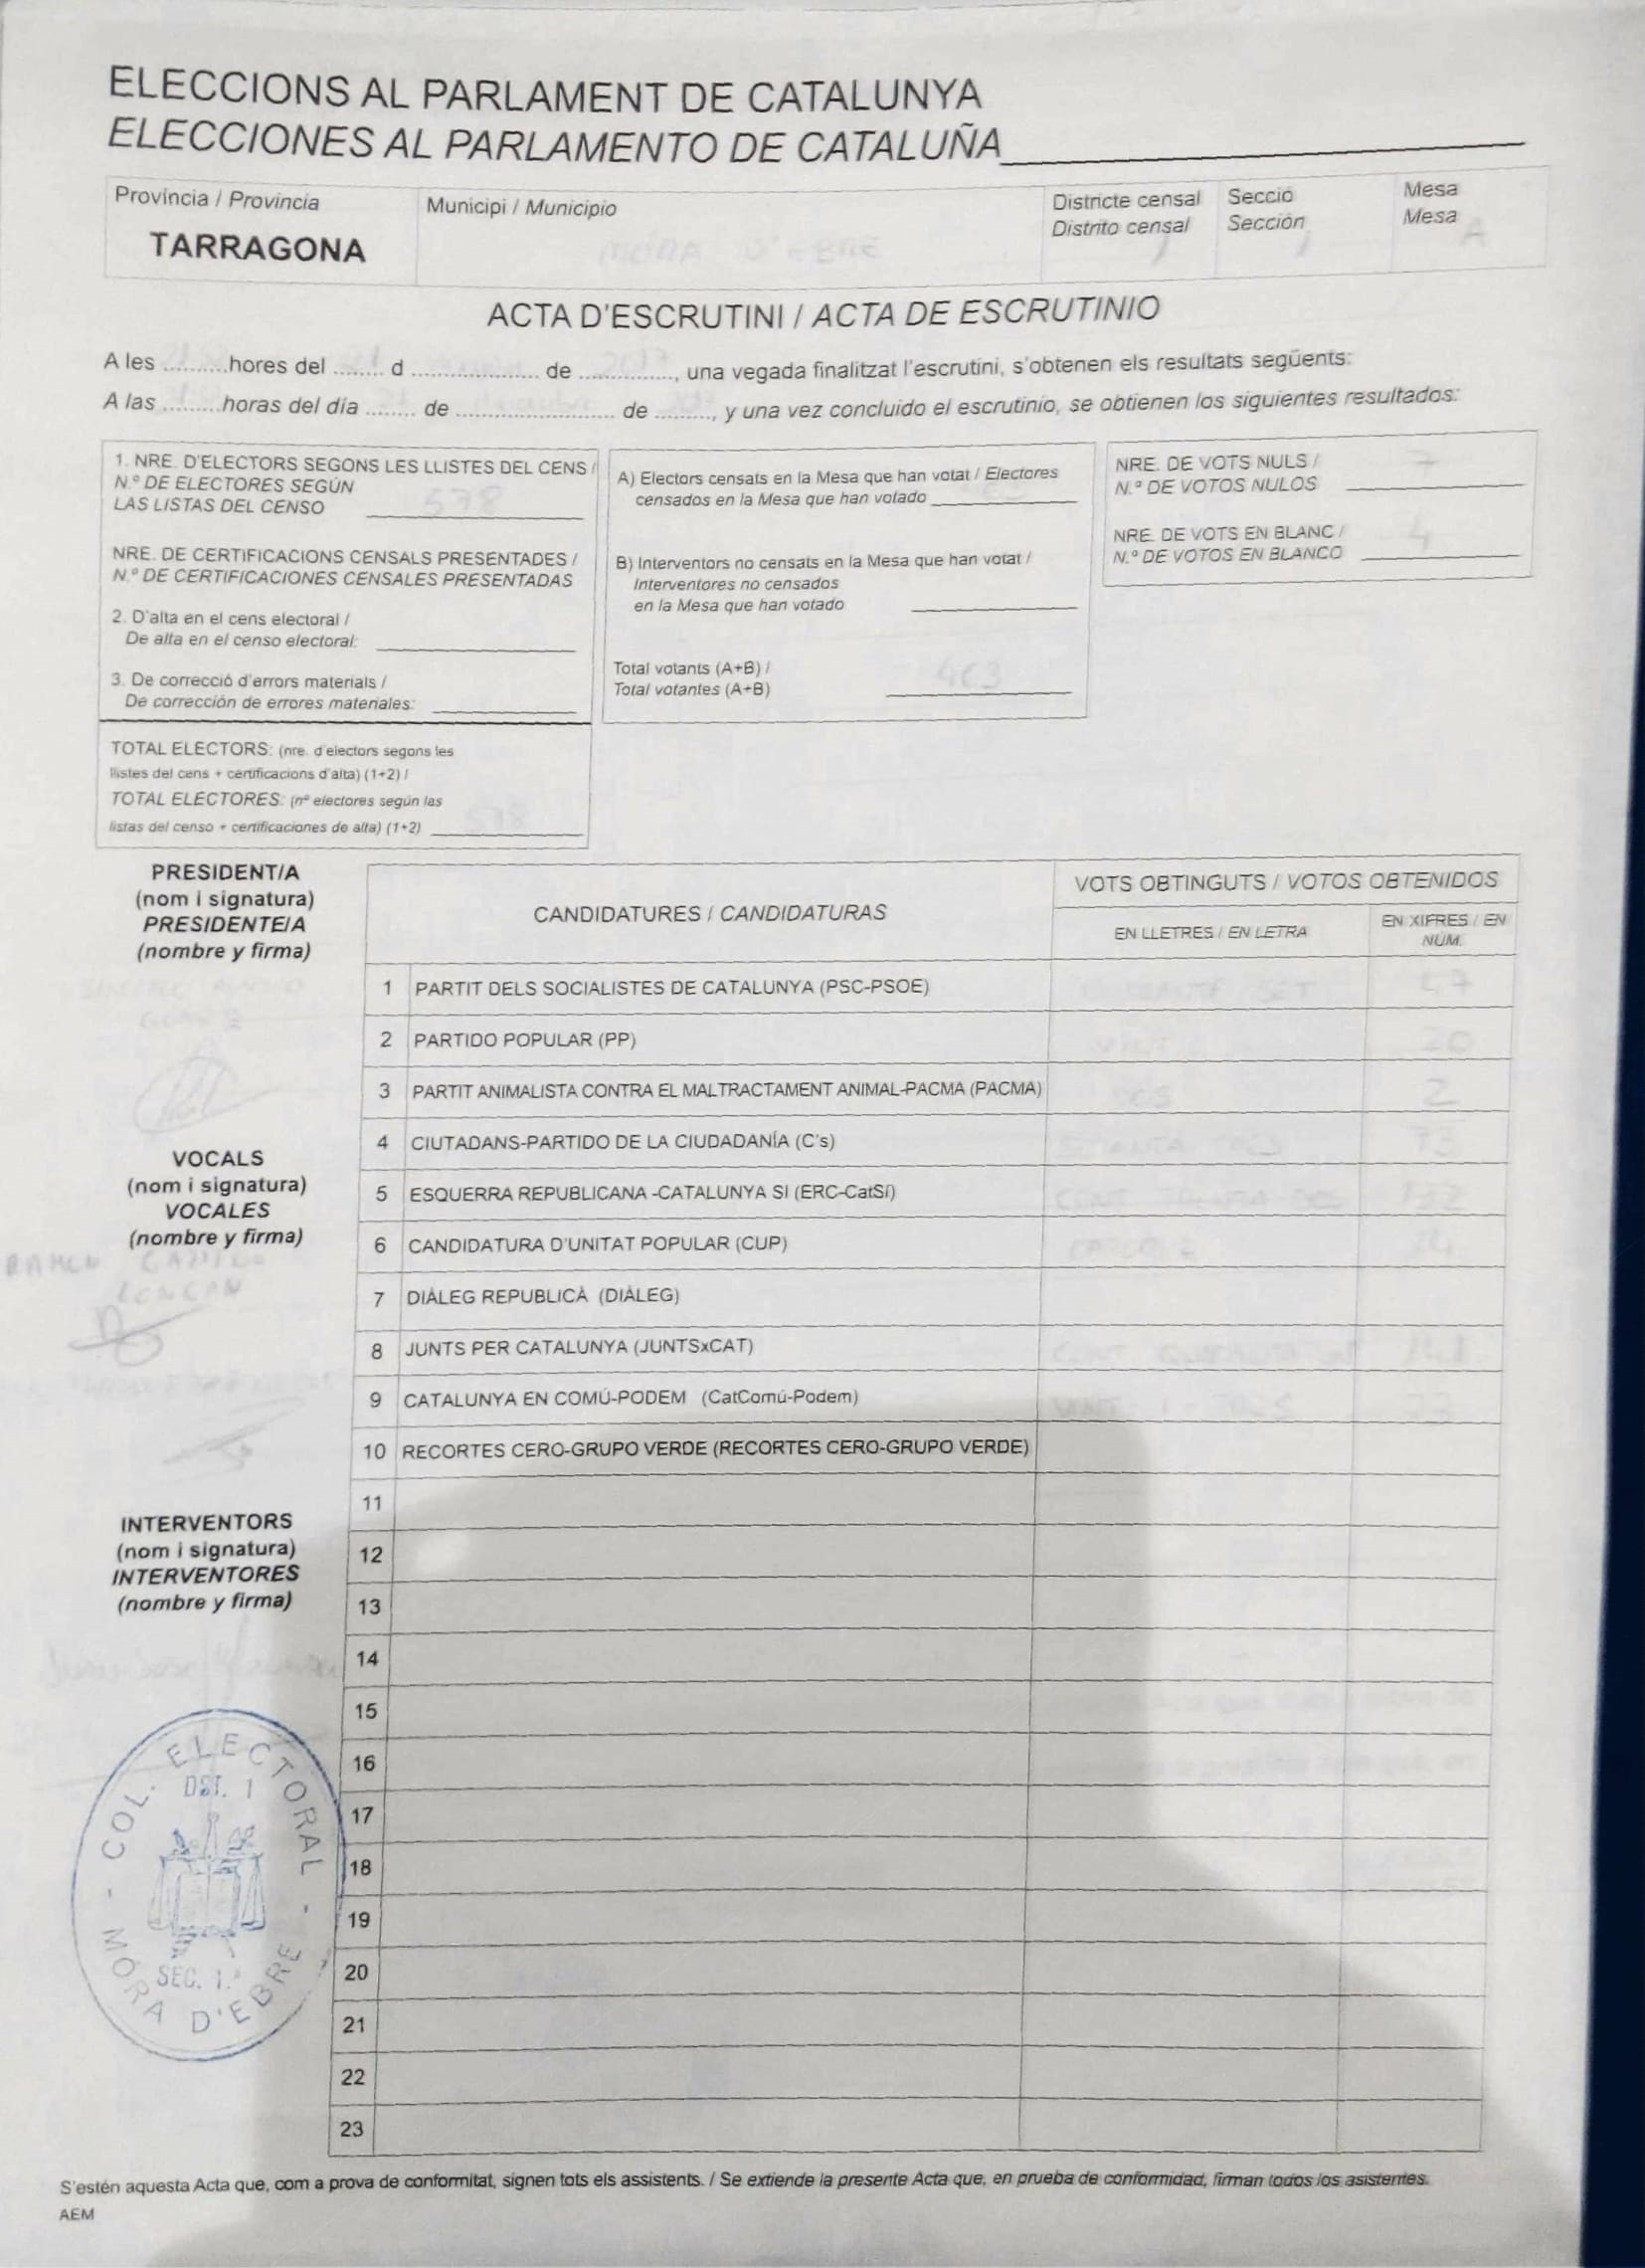 ELECCIONS AL PARLAMENT DE CATALUNYA
ELECCIONES AL PARLAMENTO DE CATALUÑA
Província / Provincia
TARRAGONA
Municipi / Municipio
MÓRA D'EBRE
Districte censal
Distrito censal
1
Secció
Sección
1
Mesa
Mesa
A
ACTA D'ESCRUTINI / ACTA DE ESCRUTINIO
A les ......... hores del ........ d .................... de ..............., una vegada finalitzat l'escrutini, s'obtenen els resultats següents:
A las ......... horas del día ........ de ......................... de ........., y una vez concluido el escrutinio, se obtienen los siguientes resultados:
1. NRE. D'ELECTORS SEGONS LES LLISTES DEL CENS /
N.º DE ELECTORES SEGÚN
LAS LISTAS DEL CENSO 578
NRE. DE CERTIFICACIONS CENSALS PRESENTADES /
N.º DE CERTIFICACIONES CENSALES PRESENTADAS
2. D'alta en el cens electoral /
De alta en el censo electoral:
3. De correcció d'errors materials /
De corrección de errores materiales:
TOTAL ELECTORS: (nre. d'electors segons les
llistes del cens + certificacions d'alta) (1+2) /
TOTAL ELECTORES: (nº electores según las
listas del censo + certificaciones de alta) (1+2) 578
A) Electors censats en la Mesa que han votat / Electores
censados en la Mesa que han votado
B) Interventors no censats en la Mesa que han votat /
Interventores no censados
en la Mesa que han votado
Total votants (A+B) /
Total votantes (A+B) 463
NRE. DE VOTS NULS /
N.º DE VOTOS NULOS 7
NRE. DE VOTS EN BLANC /
N.º DE VOTOS EN BLANCO 4
PRESIDENT/A
(nom i signatura)
PRESIDENTE/A
(nombre y firma)
VOCALS
(nom i signatura)
VOCALES
(nombre y firma)
RAMON
INTERVENTORS
(nom i signatura)
INTERVENTORES
(nombre y firma)
COL. ELECTORAL - MÓRA D'EBRE -
DST. 1
SEC. 1.ª
CANDIDATURES / CANDIDATURAS
VOTS OBTINGUTS / VOTOS OBTENIDOS
EN LLETRES / EN LETRA
EN XIFRES / EN
NÚM.
1 PARTIT DELS SOCIALISTES DE CATALUNYA (PSC-PSOE) SET 47
2 PARTIDO POPULAR (PP) VINT 20
3 PARTIT ANIMALISTA CONTRA EL MALTRACTAMENT ANIMAL-PACMA (PACMA) DOS 2
4 CIUTADANS-PARTIDO DE LA CIUDADANÍA (C's) SETANTA TRES 73
5 ESQUERRA REPUBLICANA -CATALUNYA SI (ERC-CatSí) CENT TRENTA DOS 132
6 CANDIDATURA D'UNITAT POPULAR (CUP) CATORZE 14
7 DIÀLEG REPUBLICÀ (DIÀLEG)
8 JUNTS PER CATALUNYA (JUNTSxCAT) CENT QUARANTA 141
9 CATALUNYA EN COMÚ-PODEM (CatComú-Podem) VINT I TRES 23
10 RECORTES CERO-GRUPO VERDE (RECORTES CERO-GRUPO VERDE)
11
12
13
14
15
16
17
18
19
20
21
22
23
S'estén aquesta Acta que, com a prova de conformitat, signen tots els assistents. / Se extiende la presente Acta que, en prueba de conformidad, firman todos los asistentes.
AEM